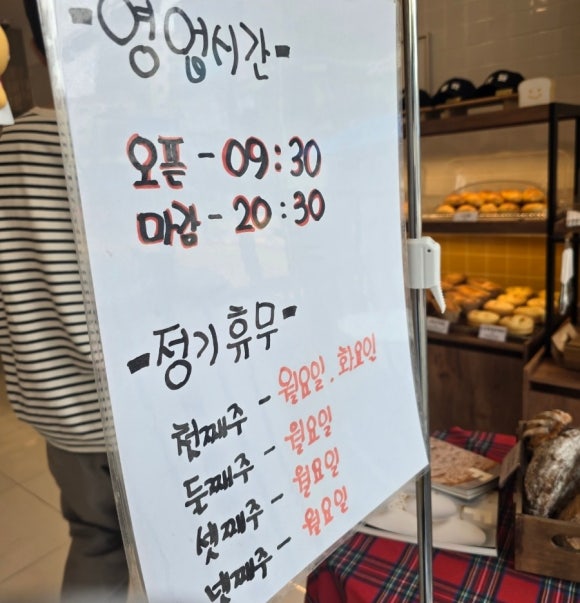 -영업시간-
오픈 - 09:30
마감 - 20:30
-정기휴무-
첫째주 - 월요일. 화요일
둘째주 - 월요일
셋째주 - 월요일
넷째주 - 월요일